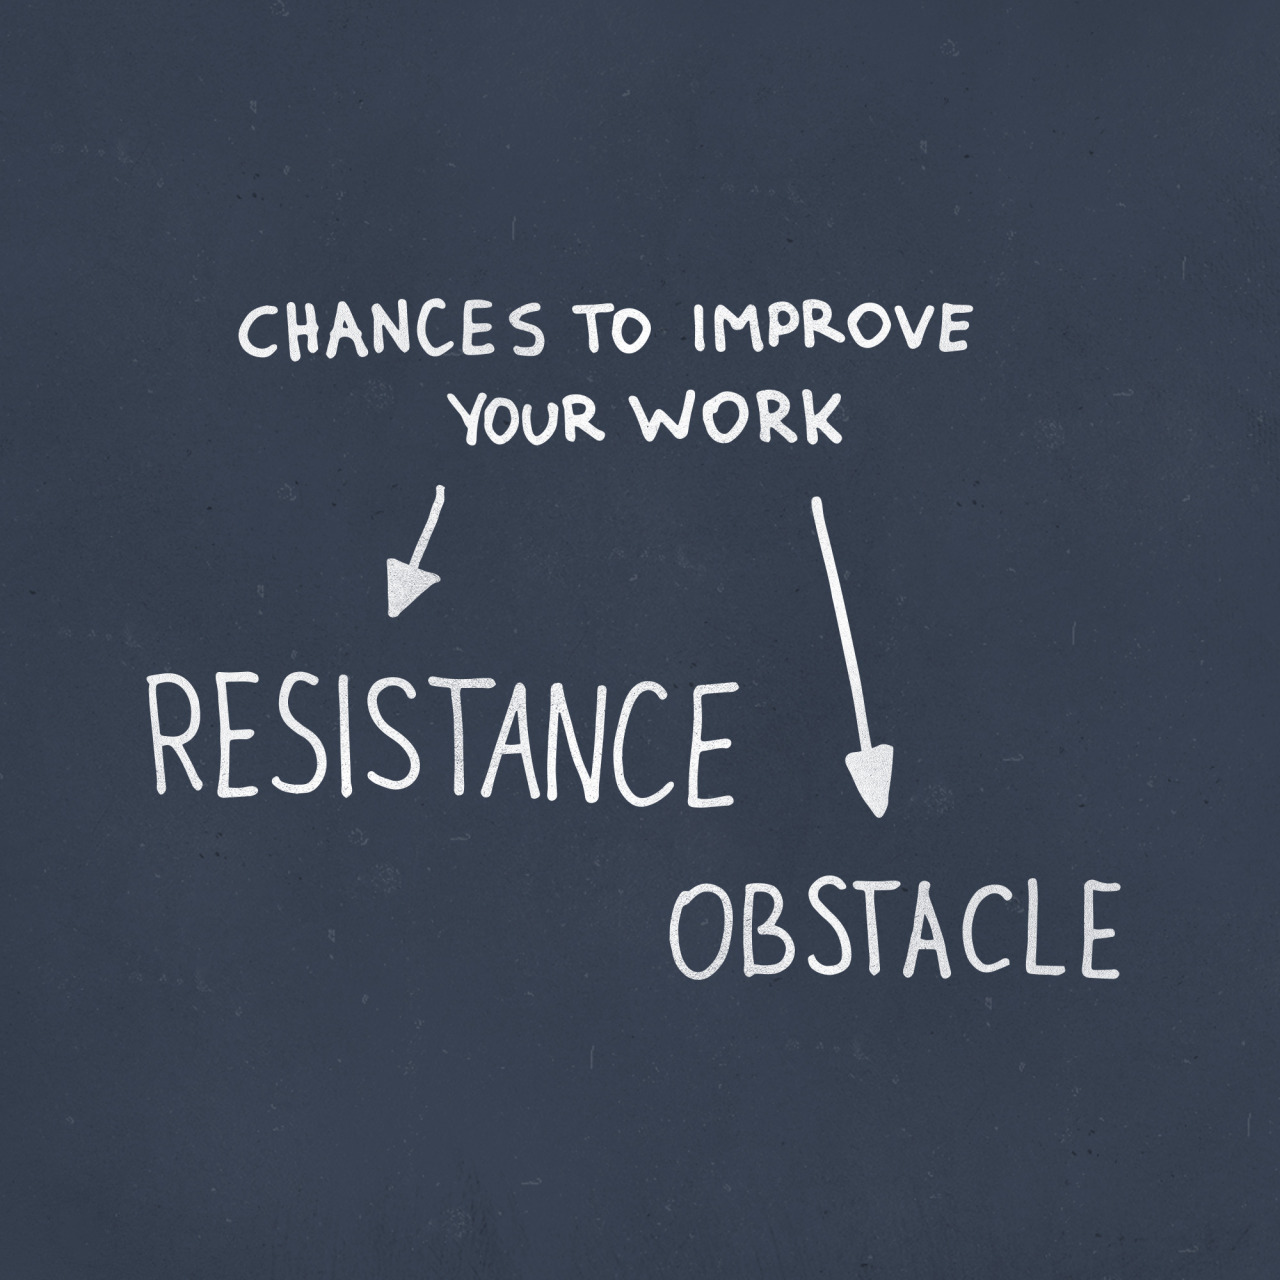 CHANCES TO IMPROVE
YOUR WORK
RESISTANCE
OBSTACLE